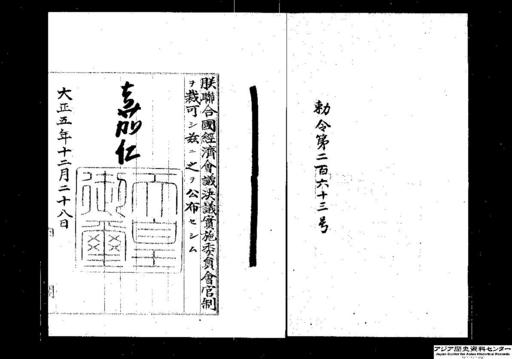 勅令第二百六十三号
朕聯合國經濟會議決議實施委員會官制
ヲ裁可シ茲ニ之ヲ公布セシム
嘉仁
天皇
御璽
大正五年十二月二十八日
アジア歴史資料センター
Japan Center for Asian Historical Records